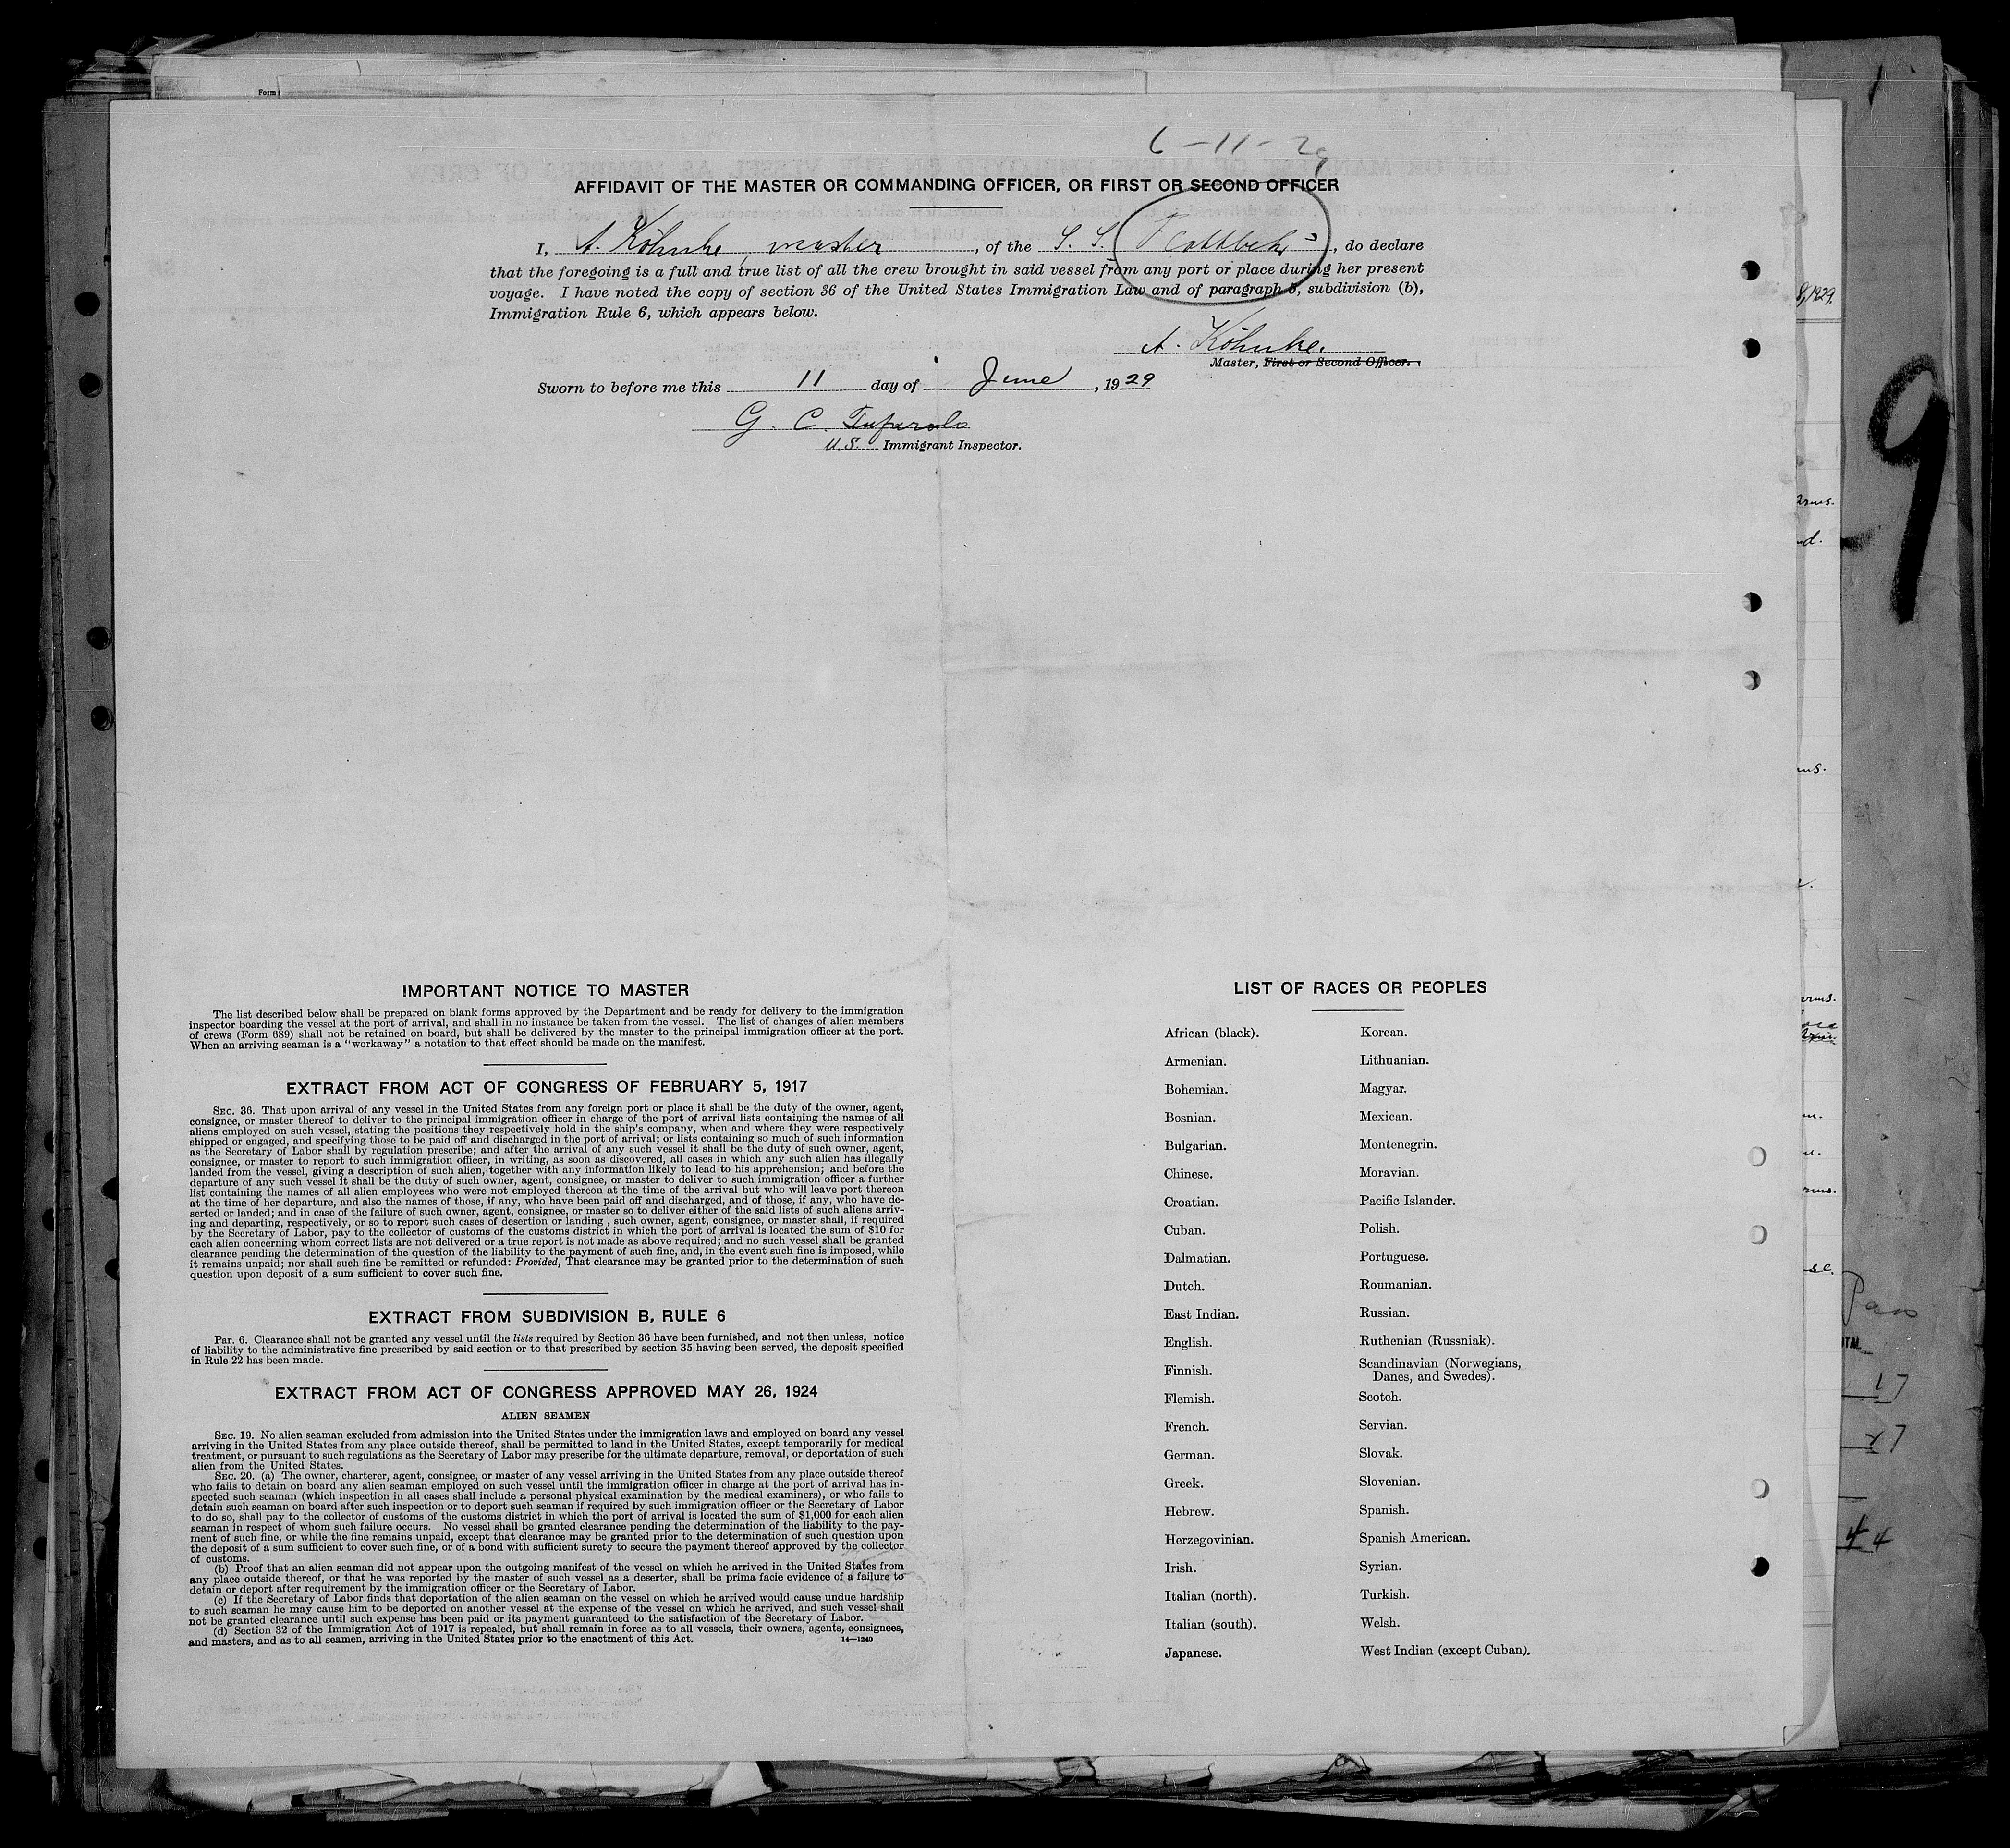 Form
6-11-29
AFFIDAVIT OF THE MASTER OR COMMANDING OFFICER, OR FIRST OR SECOND OFFICER
I, A. Köhnke, master, of the S. S. , do declare
that the foregoing is a full and true list of all the crew brought in said vessel from any port or place during her present
voyage. I have noted the copy of section 36 of the United States Immigration Law and of paragraph 6, subdivision (b),
Immigration Rule 6, which appears below.
A. Köhnke.
Master, First or Second Officer.
Sworn to before me this 11 day of June, 1929
G. C.
U.S. Immigrant Inspector.
9
IMPORTANT NOTICE TO MASTER
The list described below shall be prepared on blank forms approved by the Department and be ready for delivery to the immigration
inspector boarding the vessel at the port of arrival, and shall in no instance be taken from the vessel. The list of changes of alien members
of crews (Form 689) shall not be retained on board, but shall be delivered by the master to the principal immigration officer at the port.
When an arriving seaman is a "workaway" a notation to that effect should be made on the manifest.
EXTRACT FROM ACT OF CONGRESS OF FEBRUARY 5, 1917
SEC. 36. That upon arrival of any vessel in the United States from any foreign port or place it shall be the duty of the owner, agent,
consignee, or master thereof to deliver to the principal immigration officer in charge of the port of arrival lists containing the names of all
aliens employed on such vessel, stating the positions they respectively hold in the ship's company, when and where they were respectively
shipped or engaged, and specifying those to be paid off and discharged in the port of arrival; or lists containing so much of such information
as the Secretary of Labor shall by regulation prescribe; and after the arrival of any such vessel it shall be the duty of such owner, agent,
consignee, or master to report to such immigration officer, in writing, as soon as discovered, all cases in which any such alien has illegally
landed from the vessel, giving a description of such alien, together with any information likely to lead to his apprehension; and before the
departure of any such vessel it shall be the duty of such owner, agent, consignee, or master to deliver to such immigration officer a further
list containing the names of all alien employees who were not employed thereon at the time of the arrival but who will leave port thereon
at the time of her departure, and also the names of those, if any, who have been paid off and discharged, and of those, if any, who have de-
serted or landed; and in case of the failure of such owner, agent, consignee, or master so to deliver either of the said lists of such aliens arriv-
ing and departing, respectively, or so to report such cases of desertion or landing , such owner, agent, consignee, or master shall, if required
by the Secretary of Labor, pay to the collector of customs of the customs district in which the port of arrival is located the sum of $10 for
each alien concerning whom correct lists are not delivered or a true report is not made as above required; and no such vessel shall be granted
clearance pending the determination of the question of the liability to the payment of such fine, and, in the event such fine is imposed, while
it remains unpaid; nor shall such fine be remitted or refunded: Provided, That clearance may be granted prior to the determination of such
question upon deposit of a sum sufficient to cover such fine.
EXTRACT FROM SUBDIVISION B, RULE 6
Par. 6. Clearance shall not be granted any vessel until the lists required by Section 36 have been furnished, and not then unless, notice
of liability to the administrative fine prescribed by said section or to that prescribed by section 35 having been served, the deposit specified
in Rule 22 has been made.
EXTRACT FROM ACT OF CONGRESS APPROVED MAY 26, 1924
ALIEN SEAMEN
SEC. 19. No alien seaman excluded from admission into the United States under the immigration laws and employed on board any vessel
arriving in the United States from any place outside thereof, shall be permitted to land in the United States, except temporarily for medical
treatment, or pursuant to such regulations as the Secretary of Labor may prescribe for the ultimate departure, removal, or deportation of such
alien from the United States.
SEC. 20. (a) The owner, charterer, agent, consignee, or master of any vessel arriving in the United States from any place outside thereof
who fails to detain on board any alien seaman employed on such vessel until the immigration officer in charge at the port of arrival has in-
spected such seaman (which inspection in all cases shall include a personal physical examination by the medical examiners), or who fails to
detain such seaman on board after such inspection or to deport such seaman if required by such immigration officer or the Secretary of Labor
to do so, shall pay to the collector of customs of the customs district in which the port of arrival is located the sum of $1,000 for each alien
seaman in respect of whom such failure occurs. No vessel shall be granted clearance pending the determination of the liability to the pay-
ment of such fine, or while the fine remains unpaid, except that clearance may be granted prior to the determination of such question upon
the deposit of a sum sufficient to cover such fine, or of a bond with sufficient surety to secure the payment thereof approved by the collector
of customs.
(b) Proof that an alien seaman did not appear upon the outgoing manifest of the vessel on which he arrived in the United States from
any place outside thereof, or that he was reported by the master of such vessel as a deserter, shall be prima facie evidence of a failure to
detain or deport after requirement by the immigration officer or the Secretary of Labor.
(c) If the Secretary of Labor finds that deportation of the alien seaman on the vessel on which he arrived would cause undue hardship
to such seaman he may cause him to be deported on another vessel at the expense of the vessel on which he arrived, and such vessel shall
not be granted clearance until such expense has been paid or its payment guaranteed to the satisfaction of the Secretary of Labor.
(d) Section 32 of the Immigration Act of 1917 is repealed, but shall remain in force as to all vessels, their owners, agents, consignees,
and masters, and as to all seamen, arriving in the United States prior to the enactment of this Act.
14—1240
LIST OF RACES OR PEOPLES
African (black).
Armenian.
Bohemian.
Bosnian.
Bulgarian.
Chinese.
Croatian.
Cuban.
Dalmatian.
Dutch.
East Indian.
English.
Finnish.
Flemish.
French.
German.
Greek.
Hebrew.
Herzegovinian.
Irish.
Italian (north).
Italian (south).
Japanese.
Korean.
Lithuanian.
Magyar.
Mexican.
Montenegrin.
Moravian.
Pacific Islander.
Polish.
Portuguese.
Roumanian.
Russian.
Ruthenian (Russniak).
Scandinavian (Norwegians,
Danes, and Swedes).
Scotch.
Servian.
Slovak.
Slovenian.
Spanish.
Spanish American.
Syrian.
Turkish.
Welsh.
West Indian (except Cuban).
Pass
17
27
44